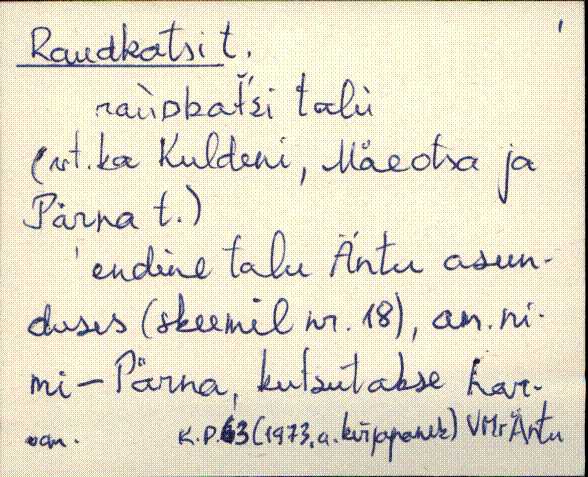 Raudkatsi t.
raùᴅkat̆śi talù
(vt. ka Kuldeni, Mäeotsa ja
Pärna t.)
endine talu Äntu asun-
duses (skeemil nr. 18), am. ni-
mi - Pärna, kutsutakse har-
van. K.P.63 (1973.a. kirjapanek) VMr Äntu